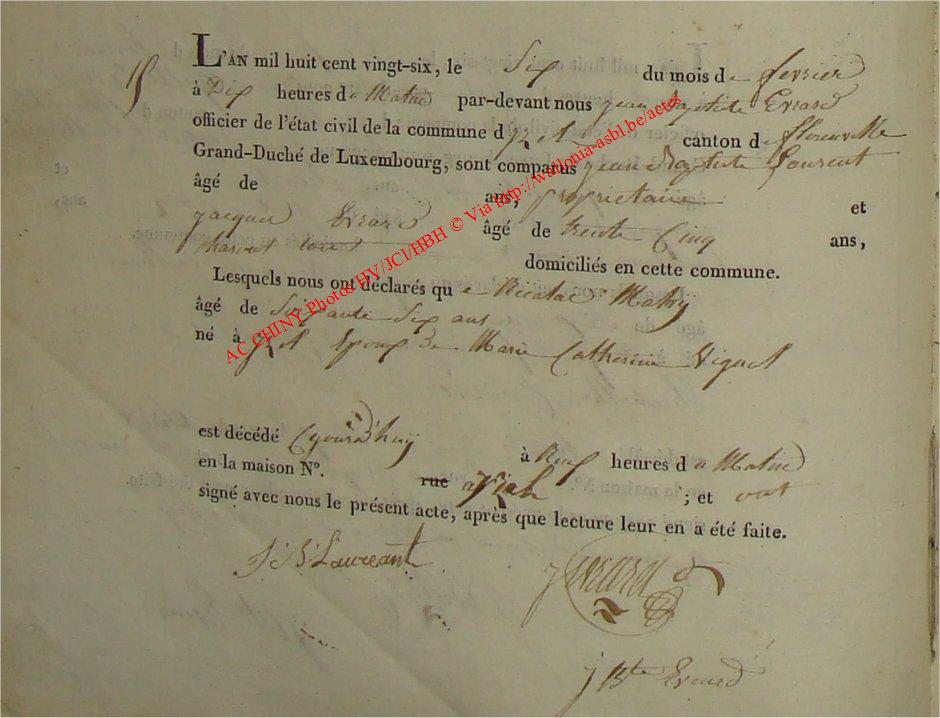 L'AN mil huit cent vingt-six, le Six du mois de fevrier
à Dix heures du Matin par-devant nous jean Baptiste Evrard
officier de l'état civil de la commune d canton de florenville
Grand-Duché de Luxembourg, sont comparus jean Baptiste Laurent
âgé de ans, proprietaire et
jacques Evrard âgé de trente Cinq ans,
domiciliés en cette commune.
Lesquels nous ont déclarés que Nicolas Mathy
âgé de Soixante Six ans
né à Epoux de Marie Catherine
est décédé à Neuf heures du Matin
en la maison N°. rue ; et ont
signé avec nous le présent acte, après que lecture leur en a été faite.
J B Laureant
J Evrard
J Bte Evrard
AC CHINY Photos HV/JCl/HBH © Via http://wallonia-asbl.be/actes